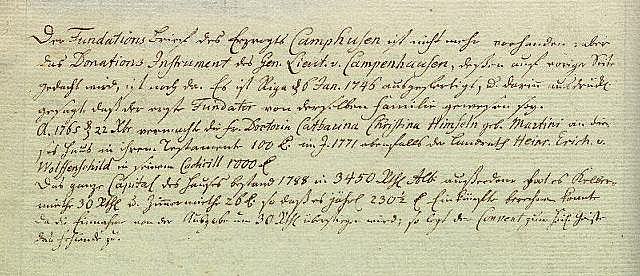 Der Fundations Brief des Erzvogts Camphusen ist nicht mehr vorhanden: aber
das Donations Instrument des Gen. Lieut. v. Campenhausen, dessen auf voriger Seite
gedacht wird, ist noch da. Es ist Riga d 6 Jan. 1746 ausgefertigt, u. darin ausdrückl
gesagt, daß der erste Fundator von derselben Familie gewesen sey.
A. 1765 d 22 Xbr vermacht die Fr. Doctorin Catharina Christina Himseln geb. Martini an die-
ses Haus in ihrem Testamente 100 im J. 1771 ebenfalls der Landrath Heinr. Erich. v.
Wolffenschild in seinem Codicill 1000
Das ganze Capital des Hauses bestand 1788 in 3450 Rthl Alb außerdem hat es Keller-
miethe 30 Rthl u. Zimmermiethe 26 so daß es jährl 230½ Einkünfte berechnen konnte
da die Einnahme von der Ausgabe um 30 Rthl überstiegen wird, so legt der Convent zum Heil. Geiste
das fehlende zu.